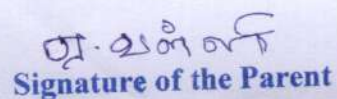 வள்ளி
Signature of the Parent